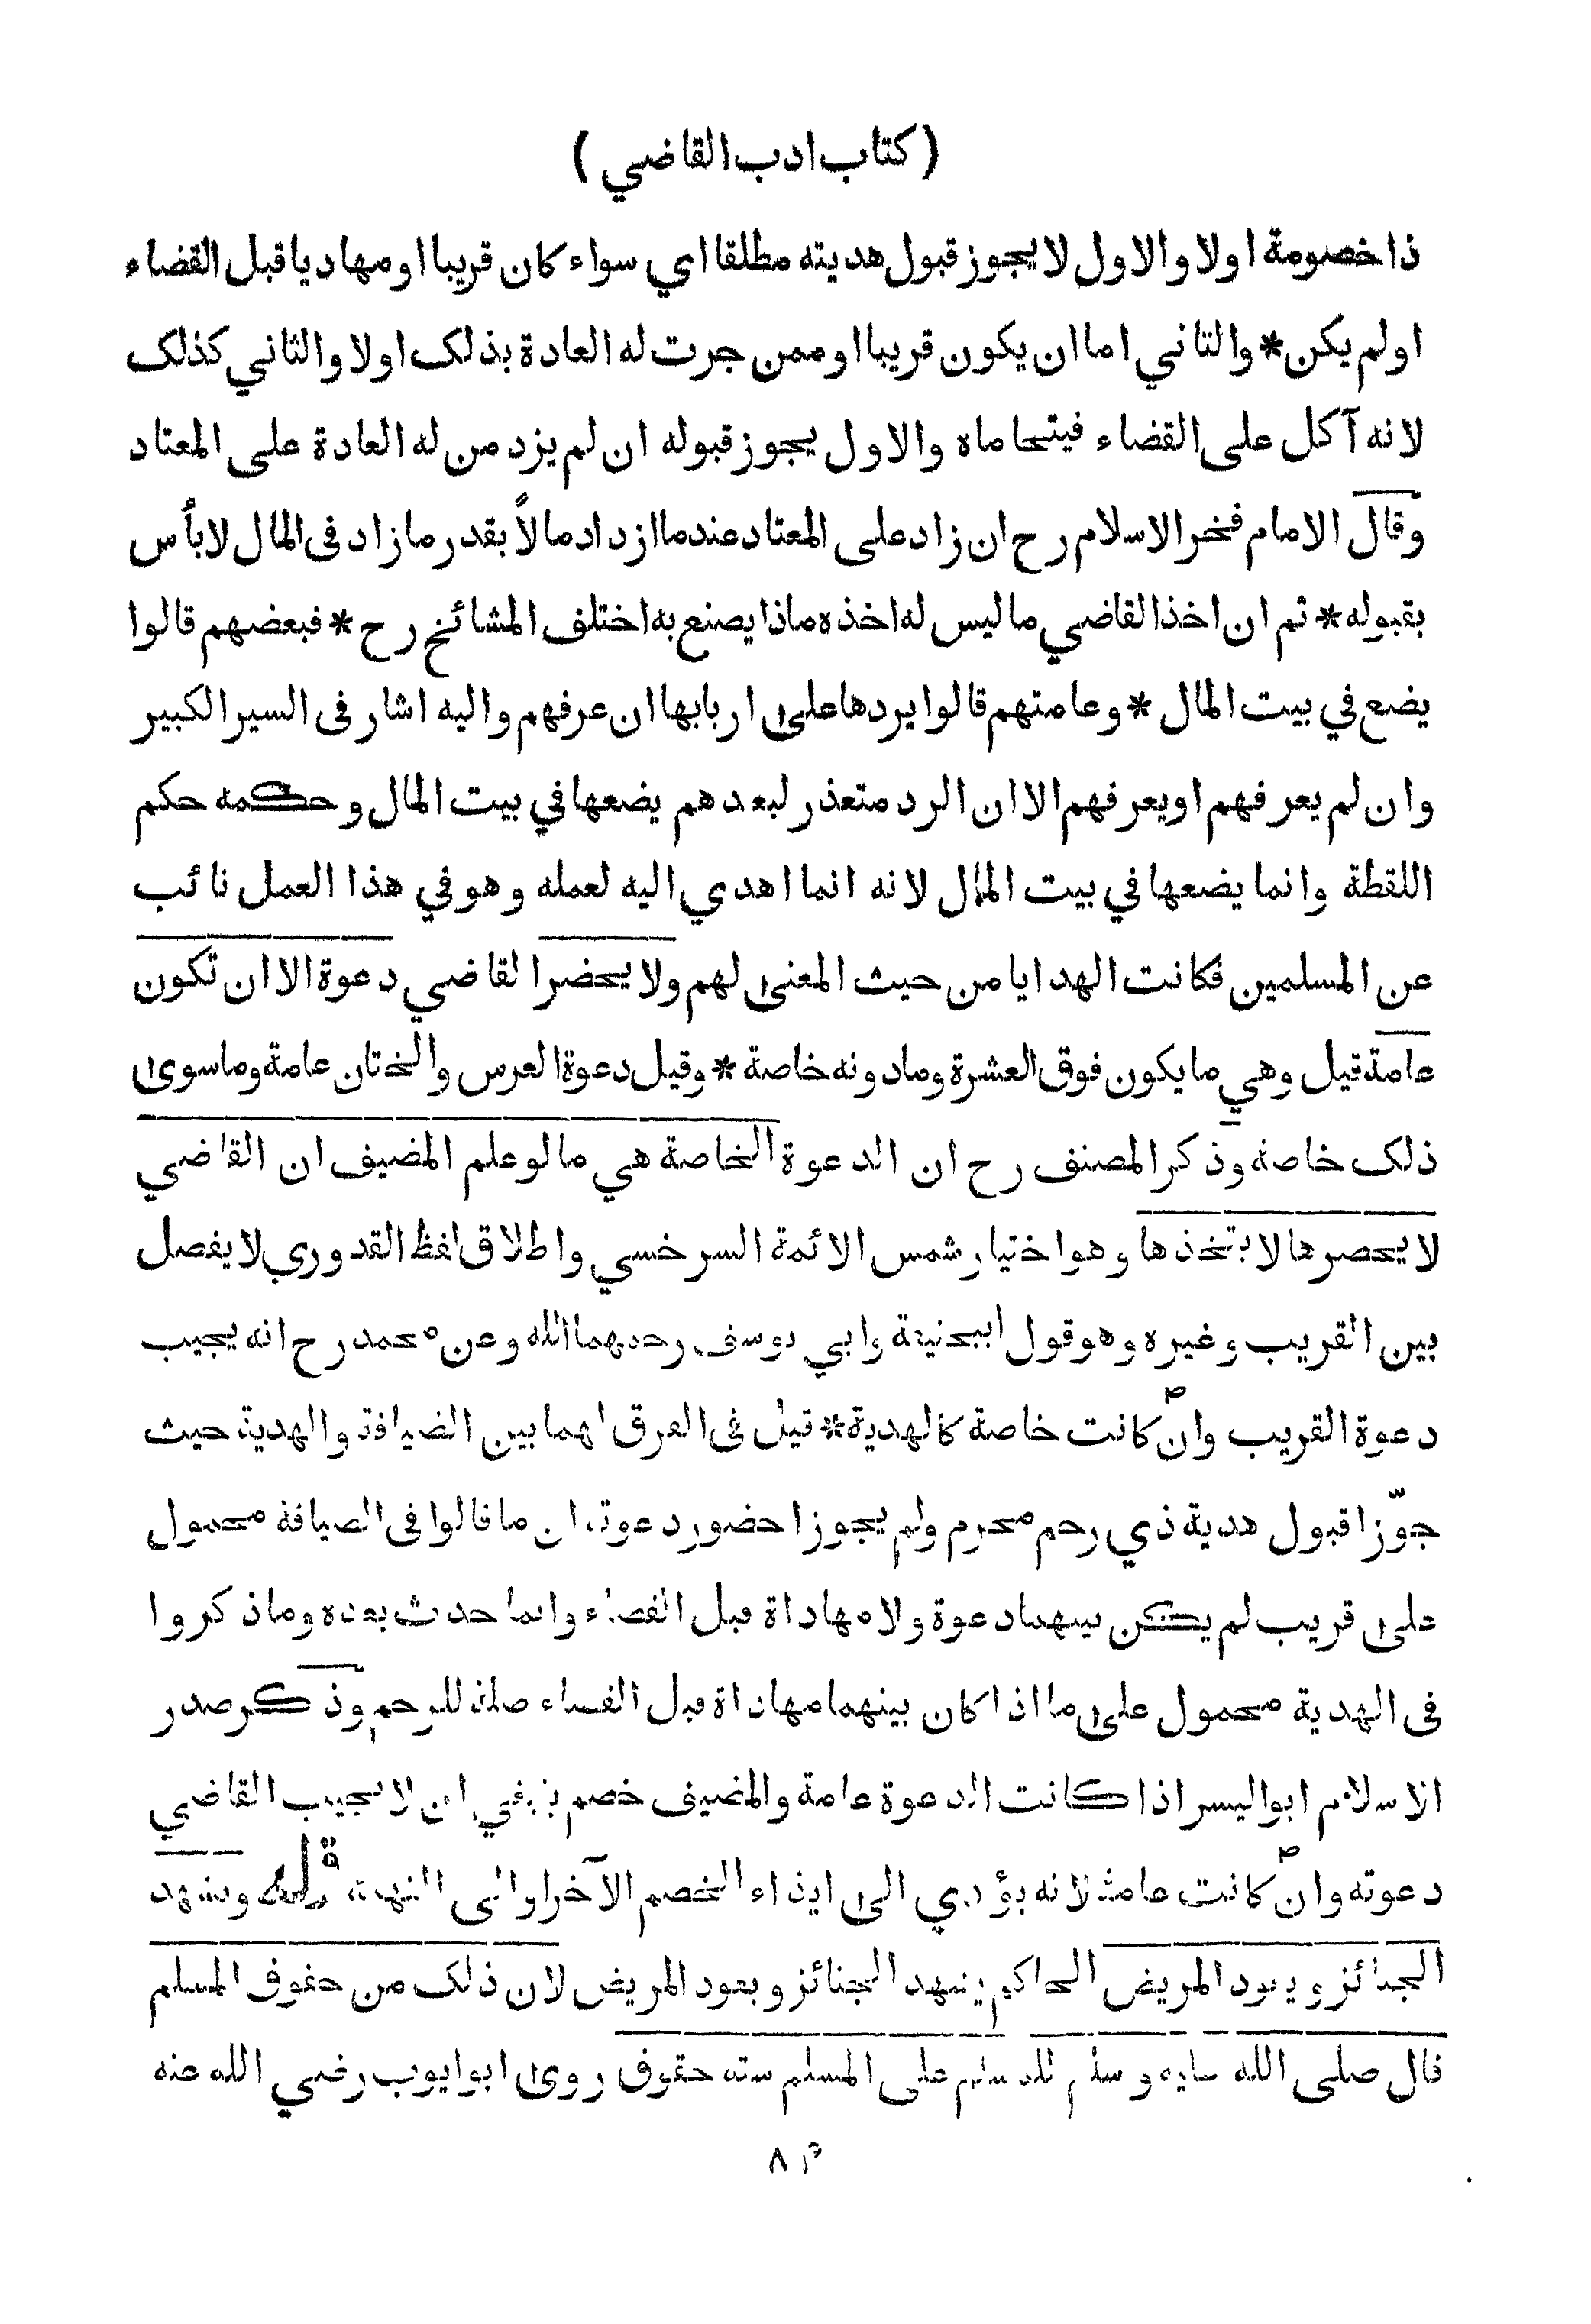 ( كتاب ادب القاضي )
ذا خصومة اولا والاول لا يجوز قبول هديته مطلقا اي سواء كان قريبا او مهاديا قبل القضاء
اولم يكن * والثاني اما ان يكون قريبا او ممن جرت له العادة بذلك اولا والثاني كذلك
لانه آكل على القضاء فيتحاماه والاول يجوز قبوله ان لم يزد من له العادة على المعتاد
وقال الامام فخر الاسلام رح ان زاد على المعتاد عند ما ازداد مالاً بقدر ما زاد فى المال لا بأس
بقبوله * ثم ان اخذ القاضي ما ليس له اخذه ماذا يصنع به اختلف المشائخ رح * فبعضهم قالوا
يضع في بيت المال * وعامتهم قالوا يردها على اربابها ان عرفهم واليه اشار فى السير الكبير
وان لم يعرفهم او يعرفهم الا ان الرد متعذر لبعدهم يضعها في بيت المال وحكمه حكم
اللقطة وانما يضعها في بيت المال لانه انما اهدي اليه لعمله وهو في هذا العمل نائب
عن المسلمين فكانت الهدايا من حيث المعنى لهم ولا يحضر القاضي دعوة الا ان تكون
عامة قيل وهي ما يكون فوق العشرة وما دونه خاصة * وقيل دعوة العرس والختان عامة وما سوى
ذلك خاصة وذكر المصنف رح ان الدعوة الخاصة هي ما لو علم المضيف ان القاضي
لا يحضرها لا يتخذها وهو اختيار شمس الائمة السرخسي واطلاق لفظ القدوري لا يفصل
بين القريب وغيره وهو قول ابيحنيفة وابي يوسف رحمهما الله وعن محمد رح انه يجيب
دعوة القريب وان كانت خاصة كالهدية * قيل فى الفرق لهما بين الضيافة والهدية حيث
جوّزا قبول هدية ذي رحم محرم ولم يجوزا حضور دعوته ان ما قالوا فى الضيافة محمول
على قريب لم يكن بينهما دعوة ولا مهاداة قبل القضاء وانما حدث بعده وما ذكروا
فى الهدية محمول على ما اذا كان بينهما مهاداة قبل القضاء صلة للرحم وذكر صدر
الاسلام ابو اليسر اذا كانت الدعوة عامة والمضيف خصم ينبغي ان لا يجيب القاضي
دعوته وان كانت عامة لانه يؤدي الى ايذاء الخصم الآخر او الى التهمة قوله ويشهد
الجنائز ويعود المريض الحاكم يشهد الجنائز ويعود المريض لان ذلك من حقوق المسلم
قال صلى الله عليه وسلم للمسلم على المسلم ستة حقوق روى ابو ايوب رضي الله عنه